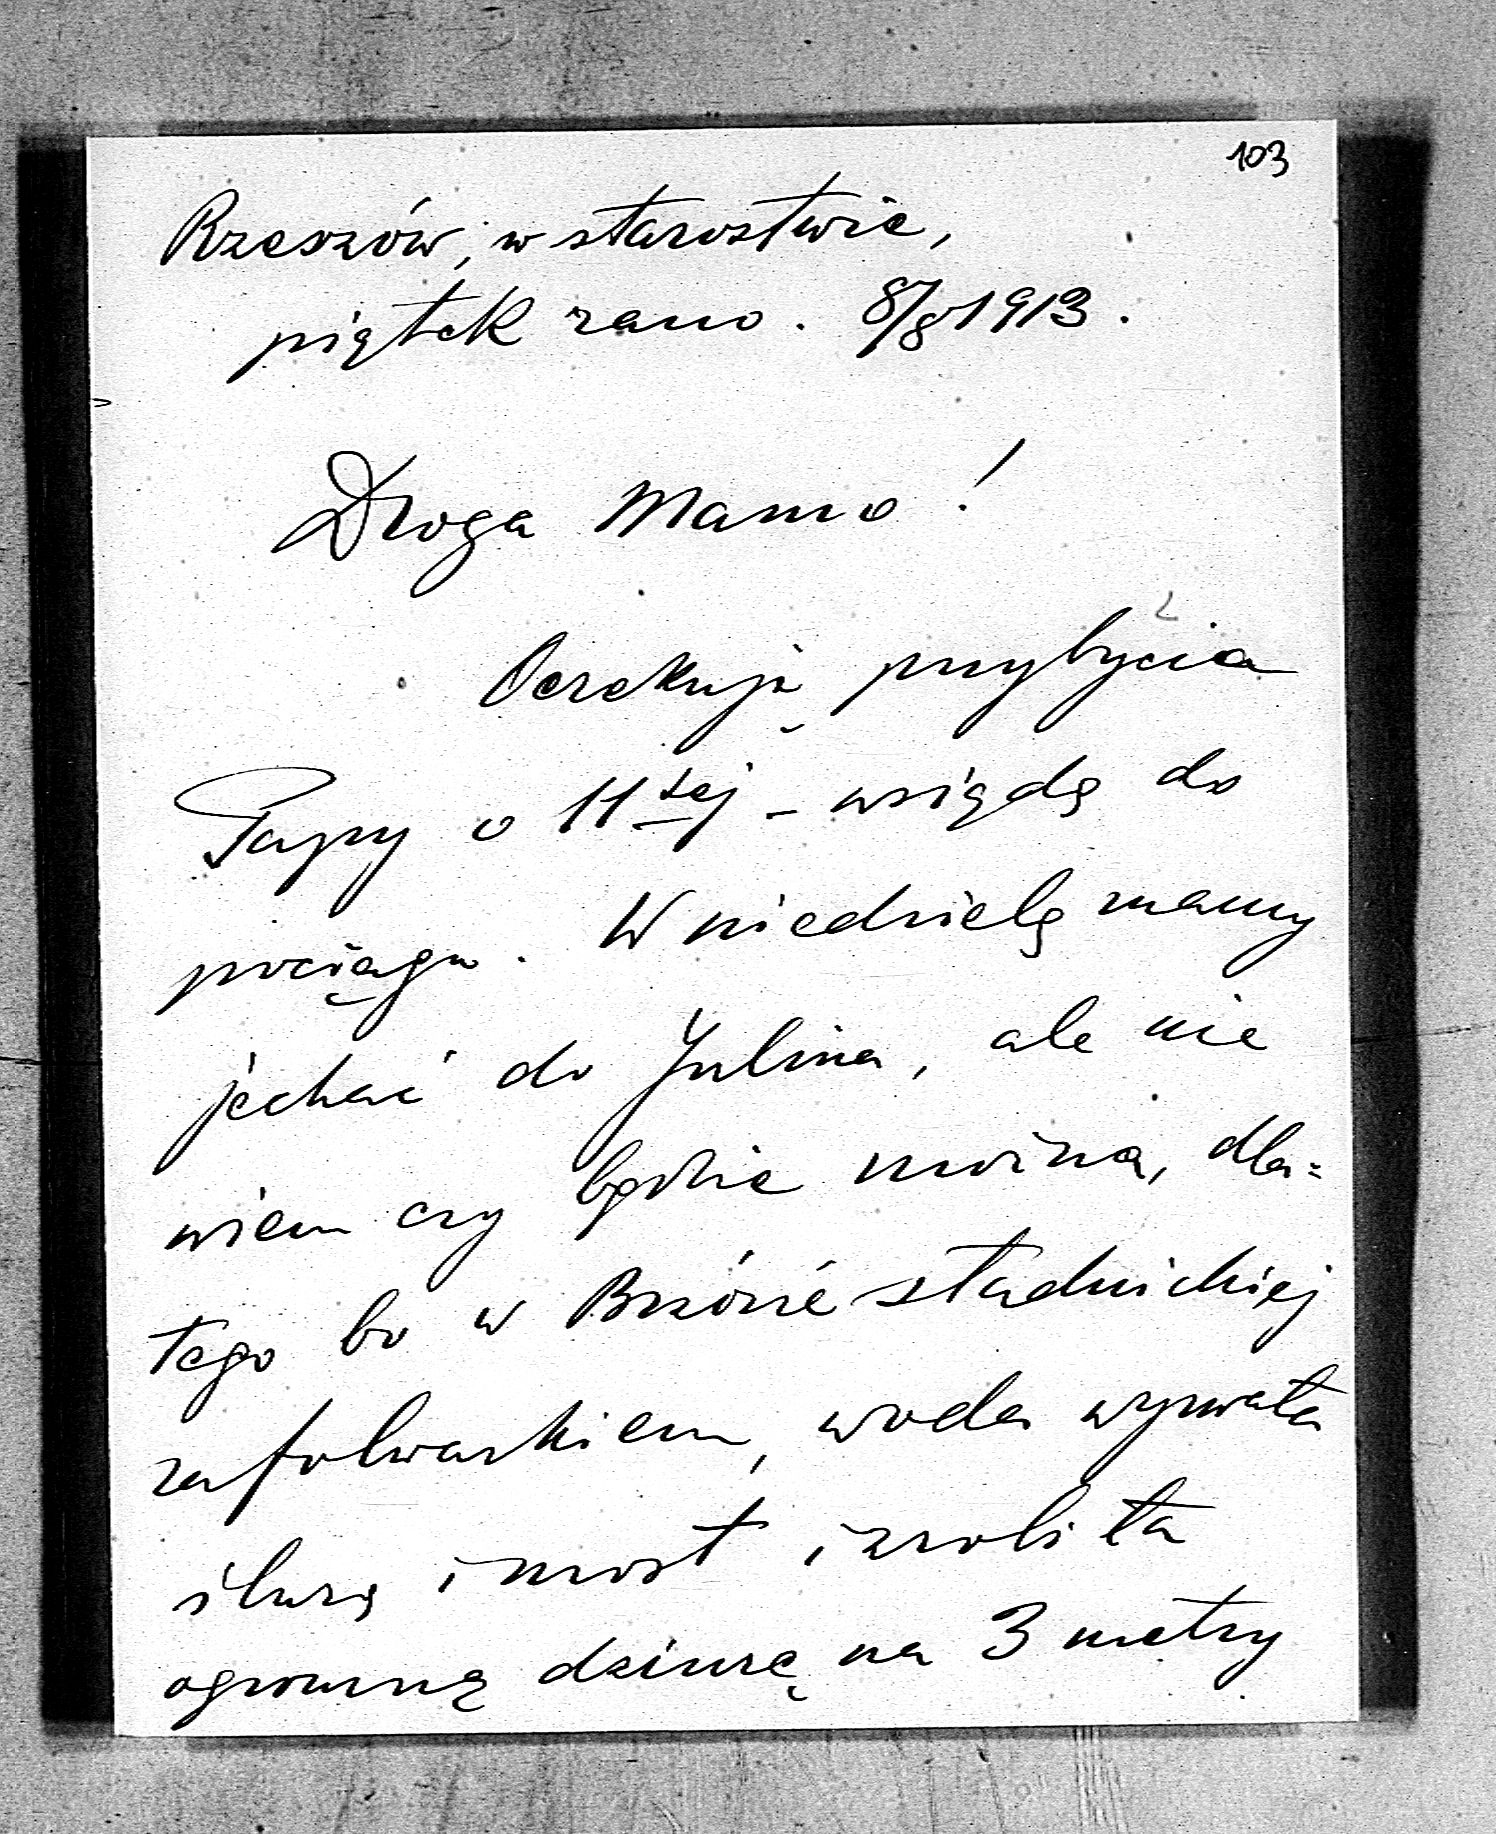 103
Rzeszów, w starostwie,
piątek rano. 8/8 1913.
Droga Mamo!
Oczekuję przybycia
Papy o 11tej - wsiądę do
pociągu. W niedzielę mamy
jechać do Julina, ale nie
wiem czy będzie można, dla=
tego bo w Brzózie stadnickiej
za folwarkiem, woda wyrwała
śluzę i most i zrobiła
ogromną dziurę na 3 metry